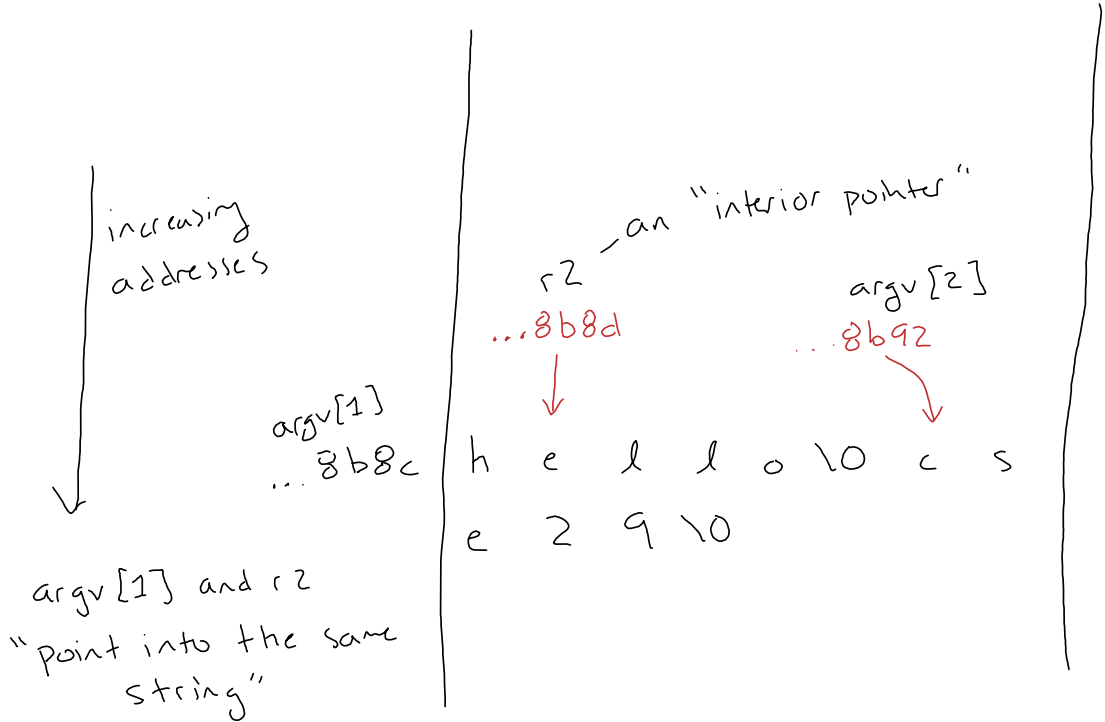 increasing
addresses
an "interior pointer"
r2
...8b8d
argv[2]
...8b92
argv[1]
...8b8c
h e l l o \0 c s
e 2 9 \0
argv[1] and r2
"point into the same
string"